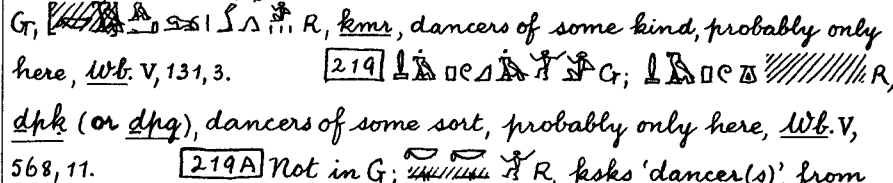 G, R, kmr, dancers of some kind, probably only
here, Wb. V, 131, 3. 219 G; R,
dpk (or dpg), dancers of some sort, probably only here, Wb. V,
568, 11. 219A Not in G; R, ksks 'dancer(s)' from